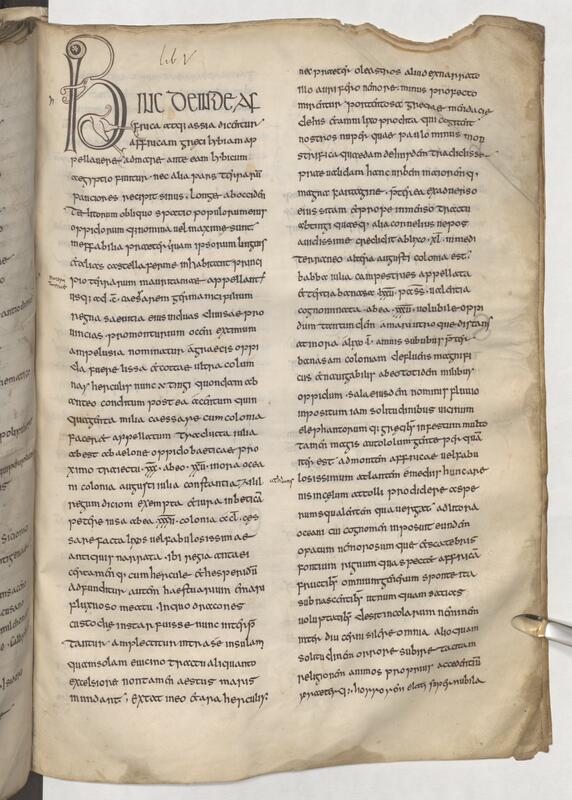 lib V
HIUC DEINDE AF
frica atque assia dicentur
affricam greci lybiam ap
pellavere
aegypto finitur nec alia pars terrarum
panciones recipit sinus longe ab occiden
te litorum obliquo spatio populorum eius
oppidorumque nomina vel maxime sunt
ineffabilia praeterquam ipsorum linguis
et alias castella ferme inhabitant princi
pio terrarum mauritaniae appellant
usque ad .c. caesarem germanici filium
regna saevitia eius in duas divisae pro
vincias promonturium oceani extimum
ampelusia nominatur a graecis oppi
da fuere lissa et cottae ultra colum
nas herculis nunc tingi quondam ab
anteo conditum postea a
facerat appellatum traducta iulia
abest a baelone oppido baeticae prox
imo traiectu xxx abeo xxv in ora ocea
ni colonia augusti iulia constantia zilil
regum dicioni exempta et iura in beticam
petere iusa abea xxxii colonia a
sare facta lixos vel fabulosissimae
antiquis narrata ibi regia antaei
certamenque cum hercule et hesperidum
horti
adfunditur autem haestuarium e mari
flexuoso meatu in quo dracones
custodiae instar fuisse nunc interpre
tantur amplectitur intra se insulam
quam solam e vicino tractu aliquanto
excelsiore non tamen aestus maris
inundant extat in eo et ara herculis
nec praeter oleastros aliud ex narrato
illo aurifero nemore minus profecto
mirentur portentosa greciae mendacia
de his et amni lixo prodita qui cogitent
nostros nuperque paulo minus mon
strifica quaedam de iisdem tradidisse
praevalidam hanc urbem maioremque
magna kartagine praeterea ex adverso
eius sitam et prope inmenso tractu
ab tingi quaeque alia cornelius nepos
avidissime credidit ab lixo .xl. in medi
terraneo altera augusti colonia est
babba iulia campestris appellata
et tertia banasa lxxv pass valentia
cognominata abea xxxv volubile oppi
dum tantundem a mari utroque distans
at in ora a lixo l amnis sububus praeter
banasam coloniam defluens magnifi
cus et navigabilis ab eo totidem milibus
oppidum sala eiusdem nominis fluvio
inpositum iam solitudinibus vicinum
elephantorumque gregibus infestum multo
tamen magis autololum gente per quam
iter est ad montem affricae vel fabu
losissimum atlantem e mediis hunc are
nis in celum attolli prodidere aspe
rum squalentem qua vergat ad litora
oceani cui cognomen inposuit eundem
opacum nemorosumque et scatebris
fontium riguum qua spectet affricam
fructibus omnium generum sponte ita
subnascentibus ut numquam satias
voluptatibus desit incolarum neminem
interdiu cerni silere omnia alio quam
solitudinem orrore subire tacitam
religionem animos propius accedentium
praeterque horrorem elati super nubila